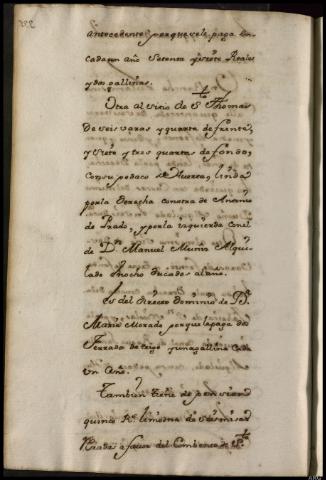 antecedente, porque se le, paga en
cada un año Setenta y siete Reales
y dos gallinas.
Otra al sitio de Sto Thomas
de seis varas y quarta de frente,
y siete y tres quartas de fondo,
con su pedazo de Huerta, linda
por la derecha con otra de Antonio
de Prado, y por la izquierda con el
de Dn Manuel Muñiz Alqui-
lado en ocho ducados al año.
Es del directo Dominio de Da
Maria Morado porque le paga dos
Ferrados de trigo y una gallina Cada
Un Año.
Tambien tiene de pension
quince Rs limosna de seis misas
Rezadas a favor del Combento de Sto